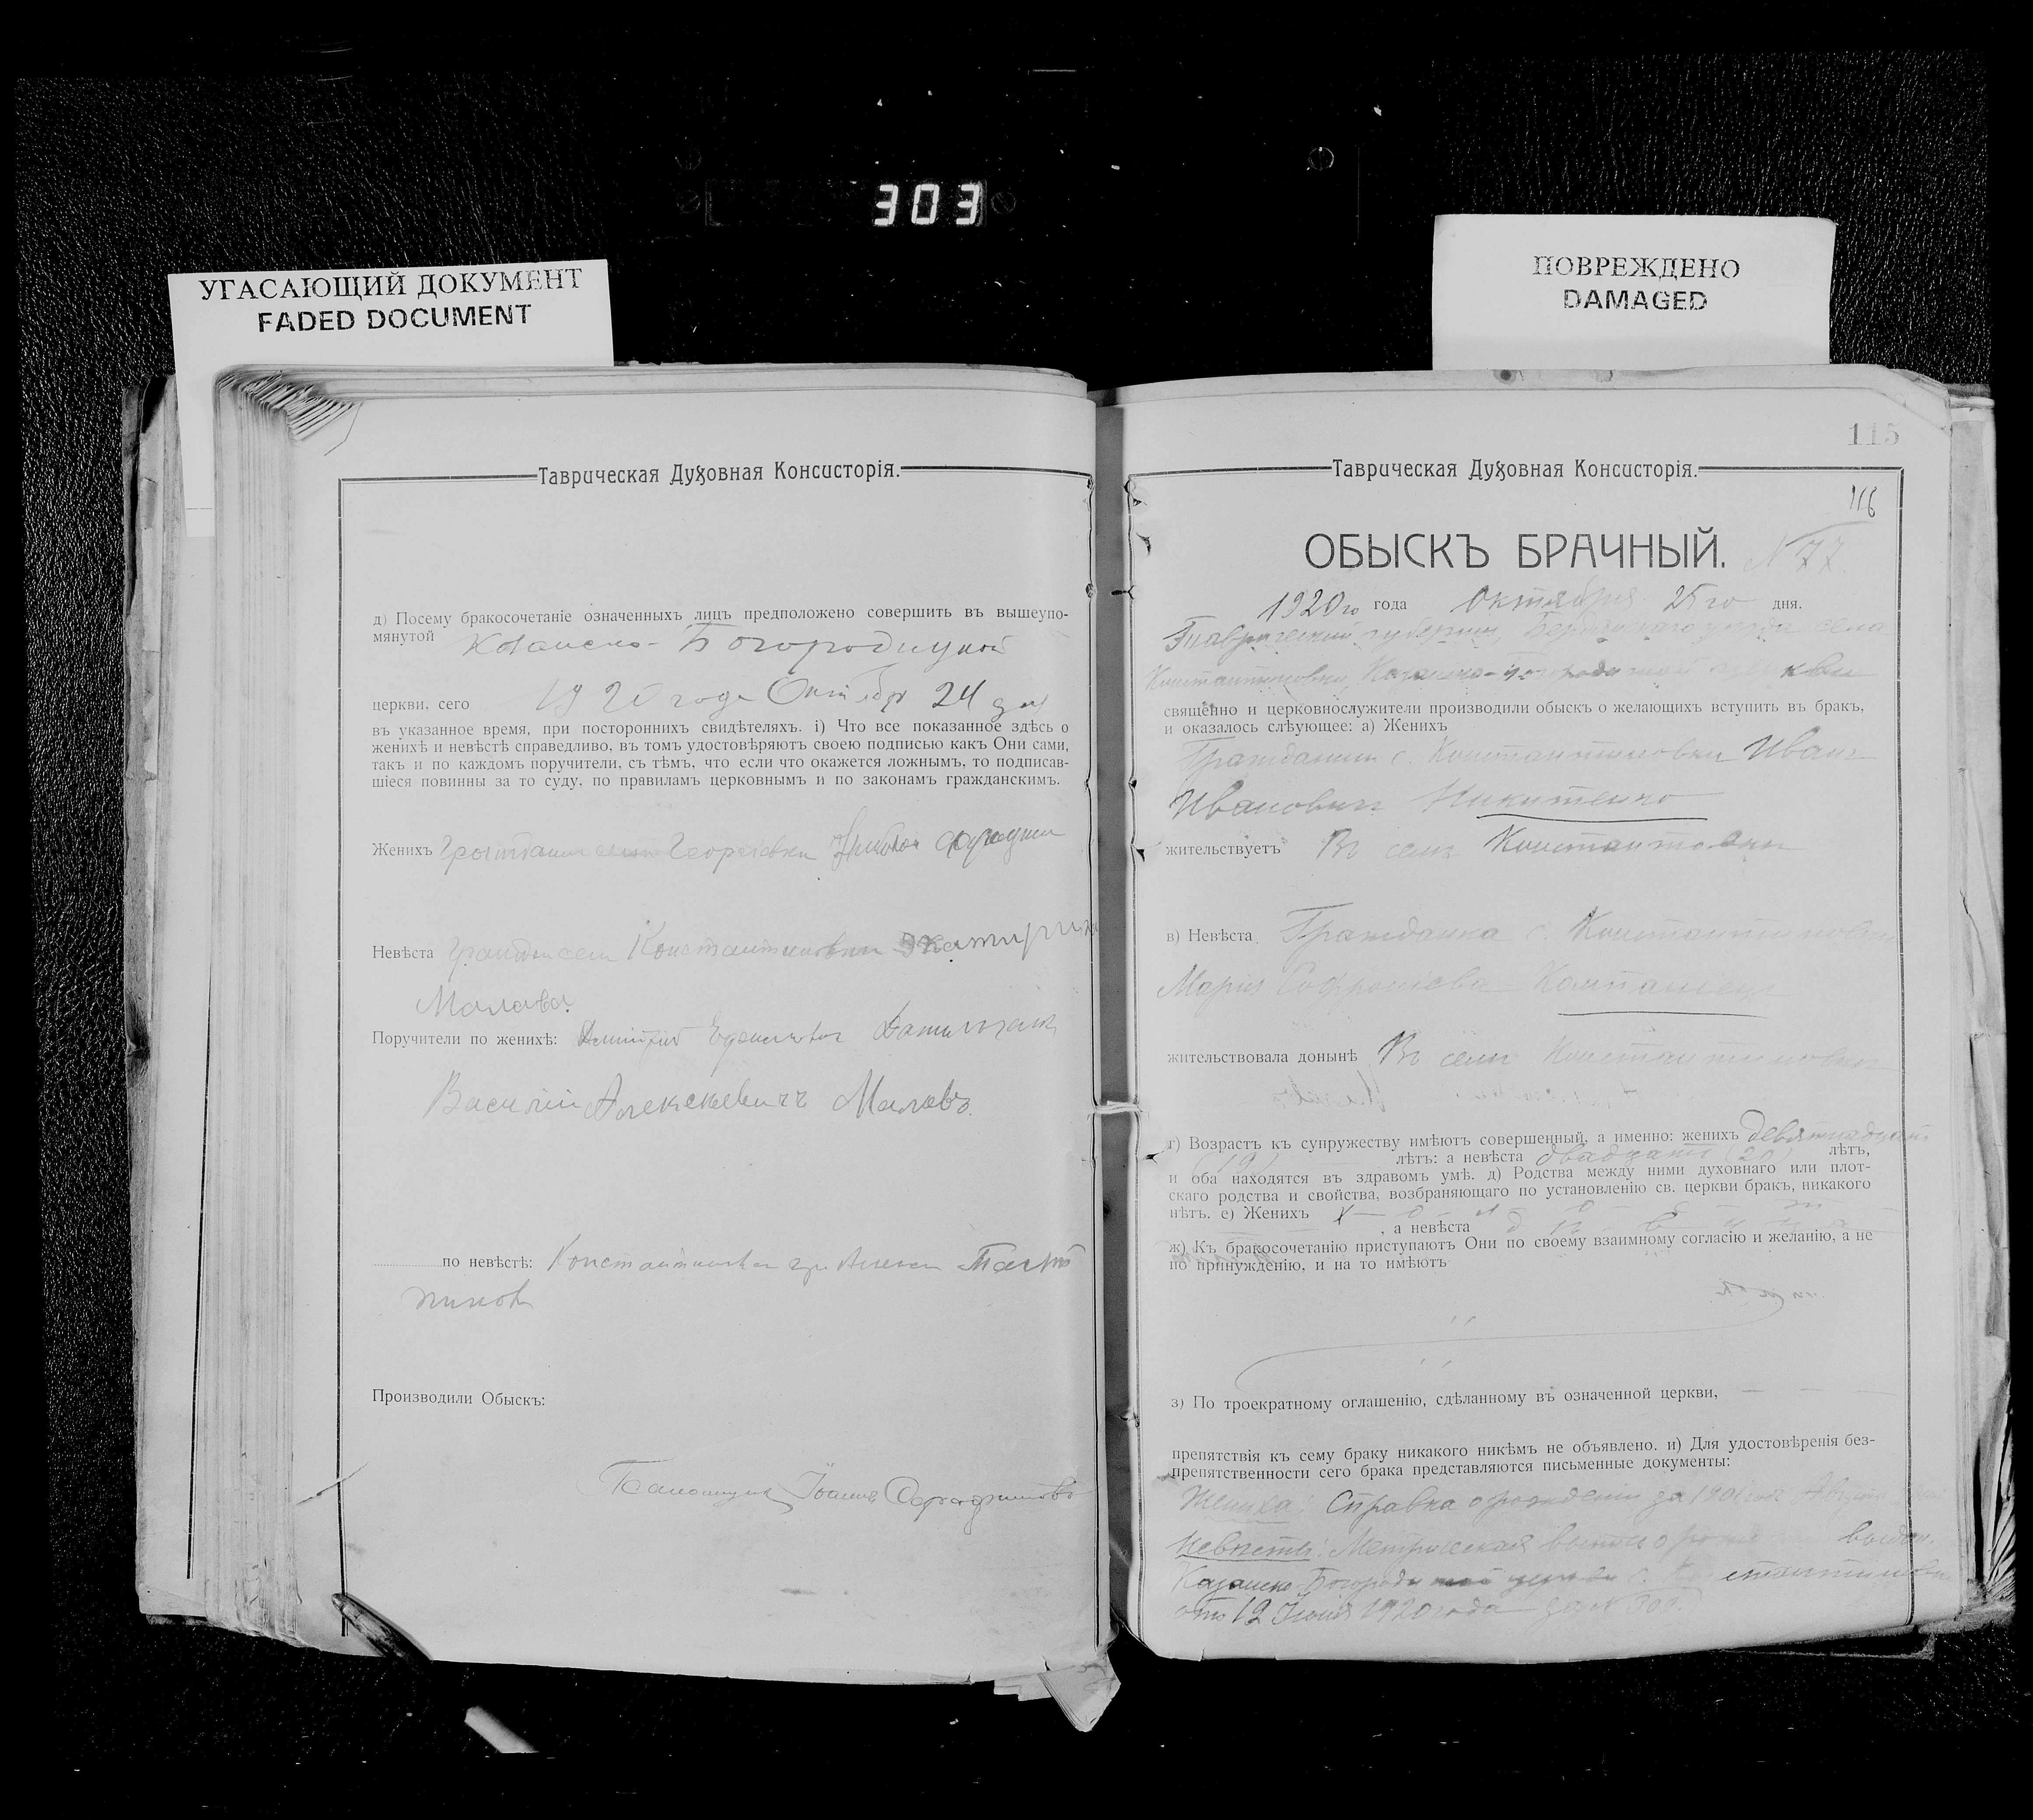 303
УГАСАЮЩИЙ ДОКУМЕНТ
FADED DOCUMENT
ПОВРЕЖДЕНО
DAMAGED
Таврическая Духовная Консисторія.
д) Посему бракосочетаніе означенныхъ лицъ предположено совершить въ вышеупо-
мянутой Казанско-Богородицкой
церкви. сего 1920 года Октября 24 дня
въ указанное время, при постороннихъ свидѣтеляхъ. і) Что все показанное здѣсь о
женихѣ и невѣстѣ справедливо, въ томъ удостовѣряютъ своею подписью какъ Они сами,
такъ и по каждомъ поручители, съ тѣмъ, что если что окажется ложнымъ, то подписав-
шіеся повинны за то суду, по правиламъ церковнымъ и по законамъ гражданскимъ.
Женихъ Гражданин Георгіевки
Невѣста Константиновки Екатирина
Малова.
Поручители по женихѣ: Дмитрій
Василій Алексѣевичъ Маловъ.
по невѣстѣ:
Производили Обыскъ:
Іоаннъ
115
Таврическая Духовная Консисторія.
116
ОБЫСКЪ БРАЧНЫЙ. N 77.
1920го года Октября 25го дня.
Таврической губерніи, Бердянскаго уезда села
Константиновки, Казанско-Богородицкой церкви
священно и церковнослужители производили обыскъ о желающихъ вступить въ бракъ,
и оказалось слѣующее: а) Женихъ
Гражданинъ с. Константиновки Иванъ
Ивановичъ Никитенко
жительствуетъ Въ селѣ Константиновкѣ
в) Невѣста Гражданка с. Константиновки
Марія Софроніева Компаніецъ
жительствовала донынѣ Въ селѣ Константиновкѣ
г) Возрастъ къ супружеству имѣютъ совершенный, а именно: женихъ девятнадцать
(19) лѣтъ: а невѣста двадцати (20) лѣтъ,
и оба находятся въ здравомъ умѣ. д) Родства между ними духовнаго или плот-
скаго родства и свойства, возбраняющаго по установленію св. церкви бракъ, никакого
нѣтъ. е) Женихъ х - о - л - о - с - т
, а невѣста д
ж) Къ бракосочетанію приступаютъ Они по своему взаимному согласію и желанію, а не
по принужденію, и на то имѣютъ
з) По троекратному оглашенію, сдѣланному въ означенной церкви,
препятствія къ сему браку никакого никѣмъ не объявлено. и) Для удостовѣренія без-
препятственности сего брака представляются письменные документы:
Жениха: Справка о рожденіи за 1901 годъ
Невѣсты: Метрическая выпись о выдан.
Казанско-Богородицкой церкви с. Константиновки
отъ 12 Іюня 1920 года за N